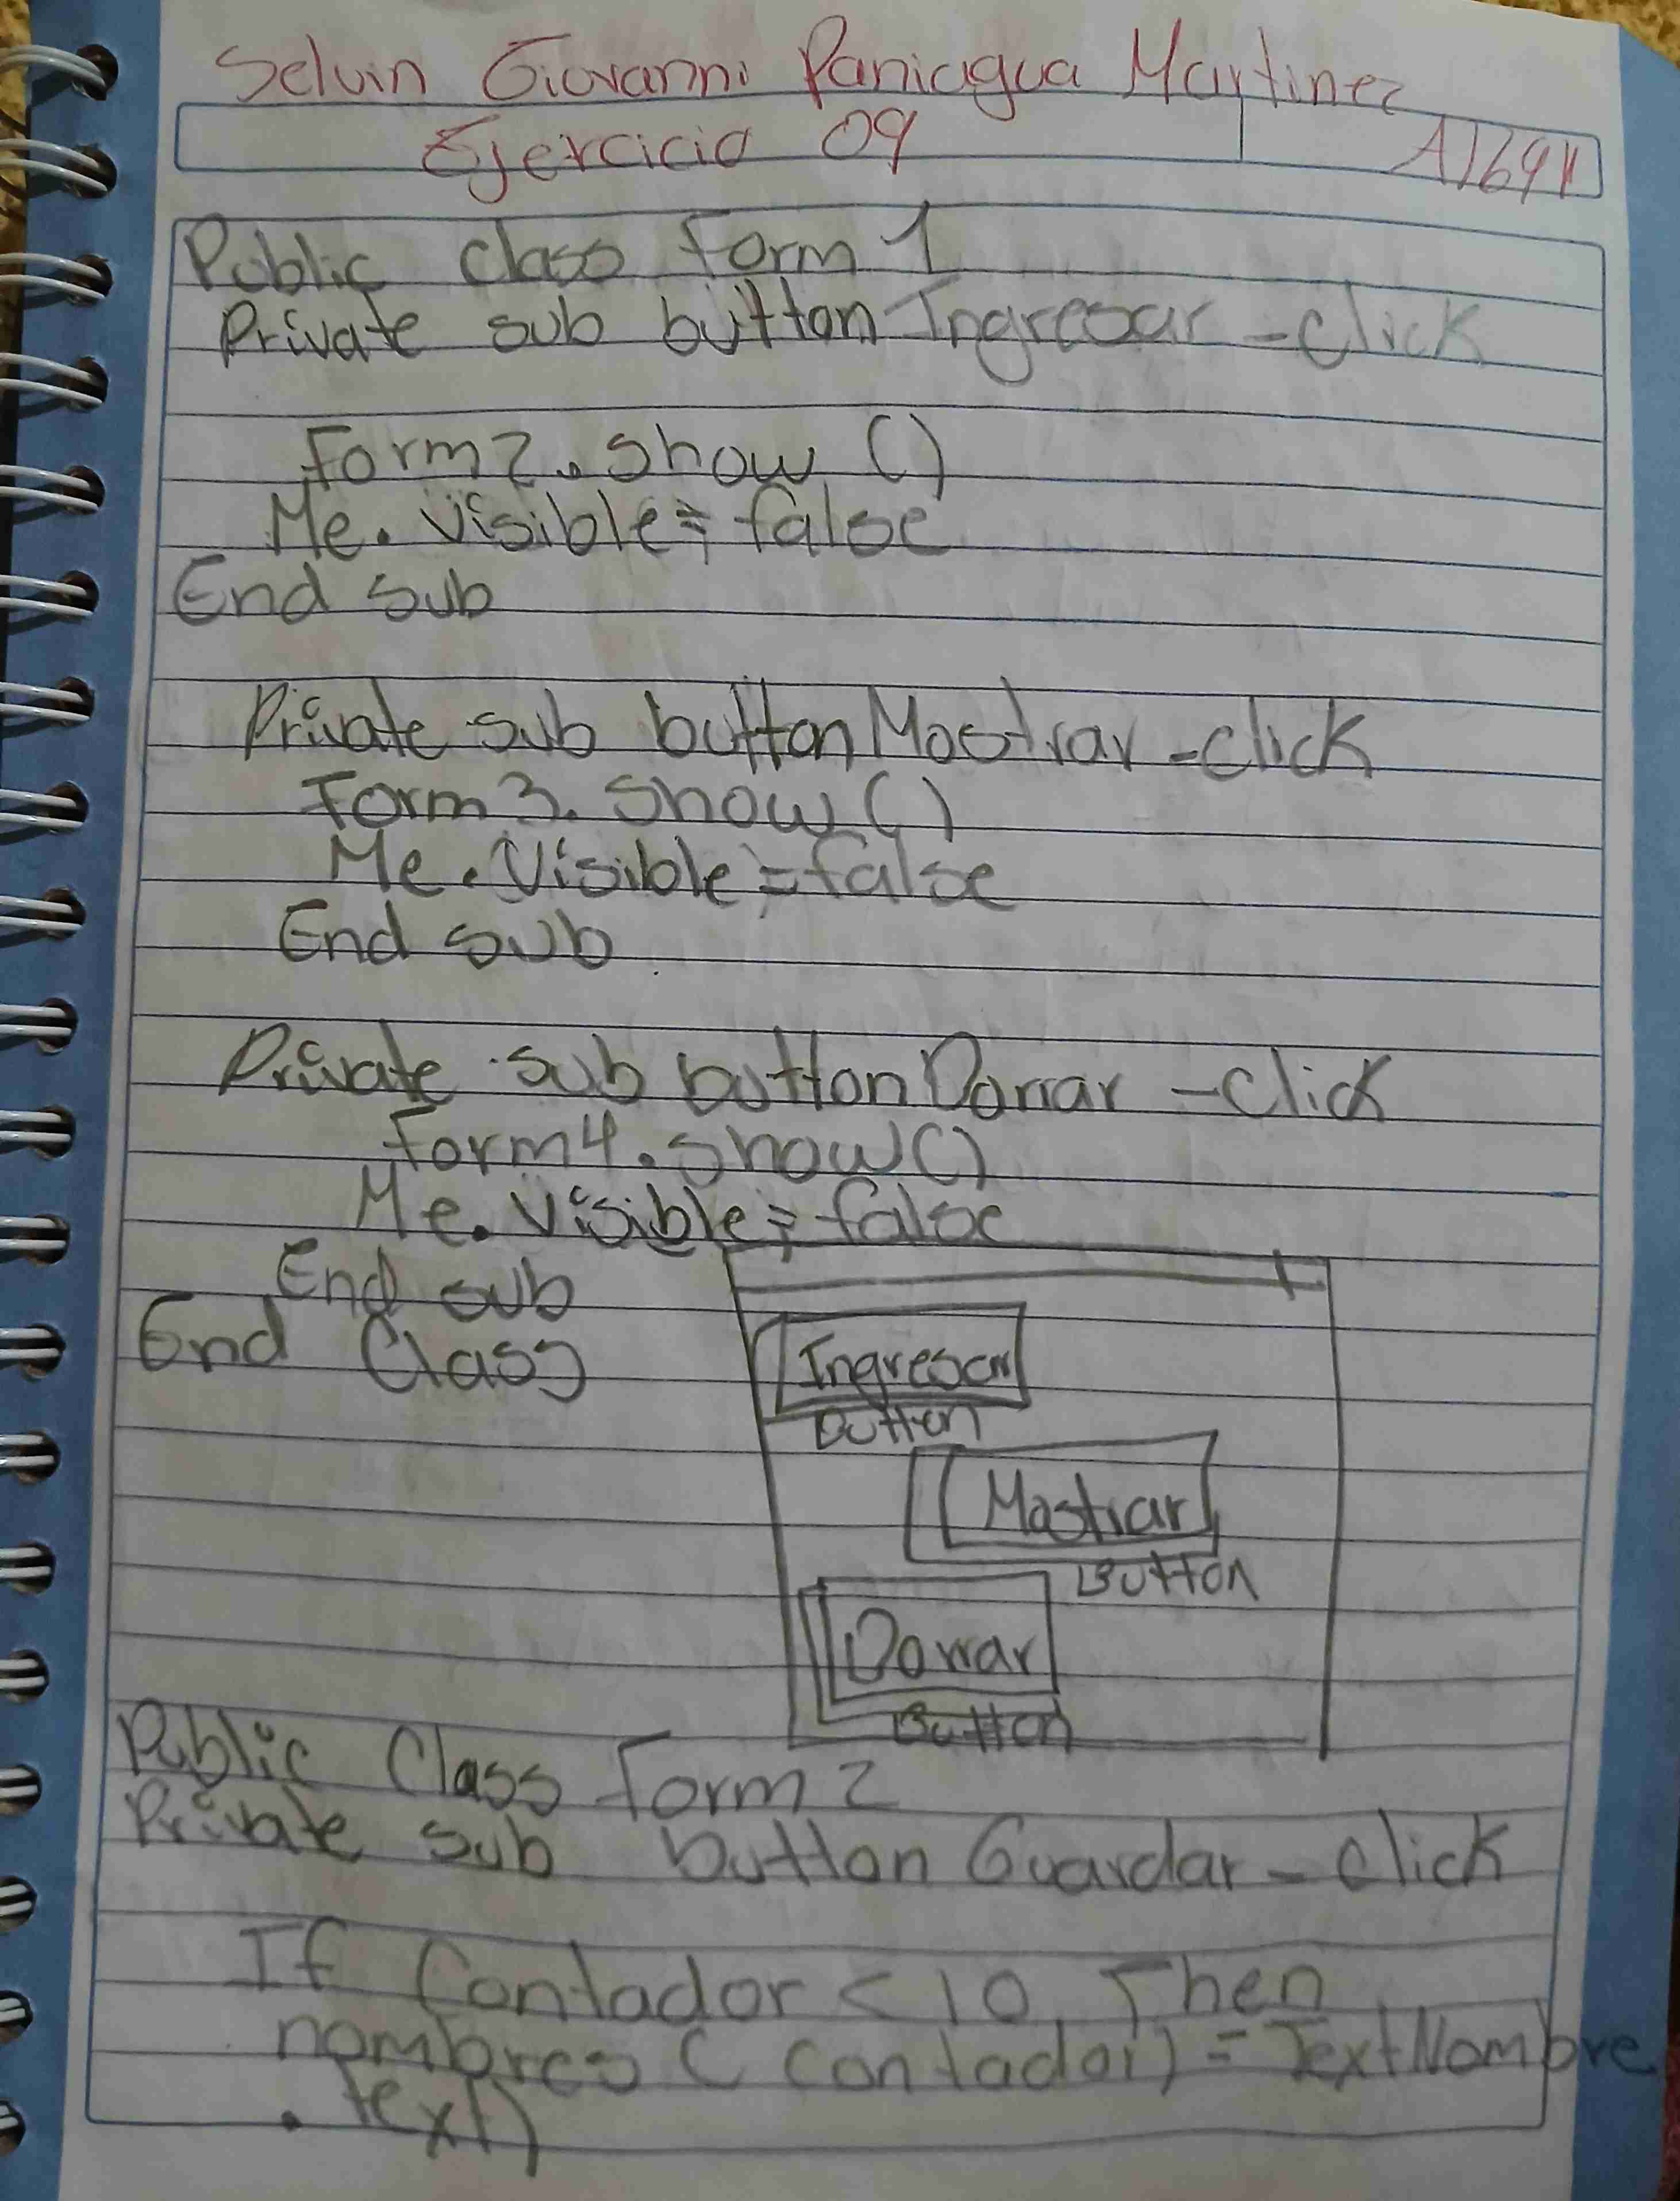 Selvin Giovanni Paniagua Martinez
Ejercicio 09
Public class Form 1
Private sub button Ingresar - click
Form2. show ()
Me. Visible = false
End sub
Private sub button Mostrar - click
Form3. show ()
Me. Visible = false
End sub
Private sub button Borrar - click
Form4. show ()
Me. Visible = false
End sub
End Class
Ingresar
Button
Mostrar
Button
Borrar
Button
Public Class Form 2
Private sub button Guardar - click
If Contador < 10 Then
nombres ( contador) = TextNombre
. text)